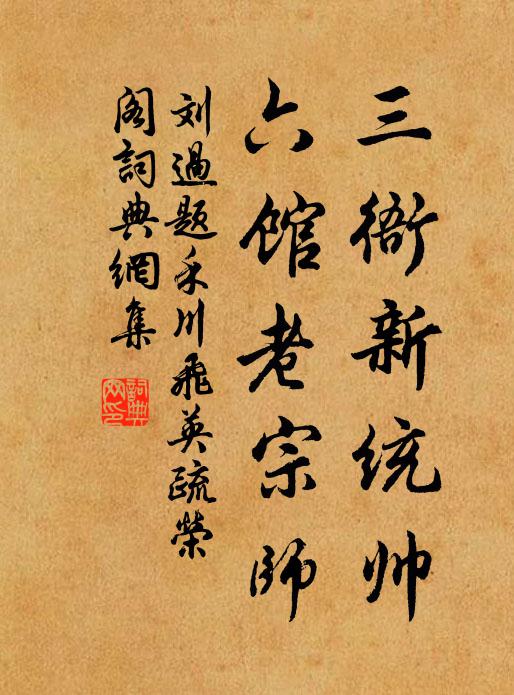 三衙新统帅
六馆老宗师
刘过题禾川飛英疏榮
阁詞典網集
詞典
网印